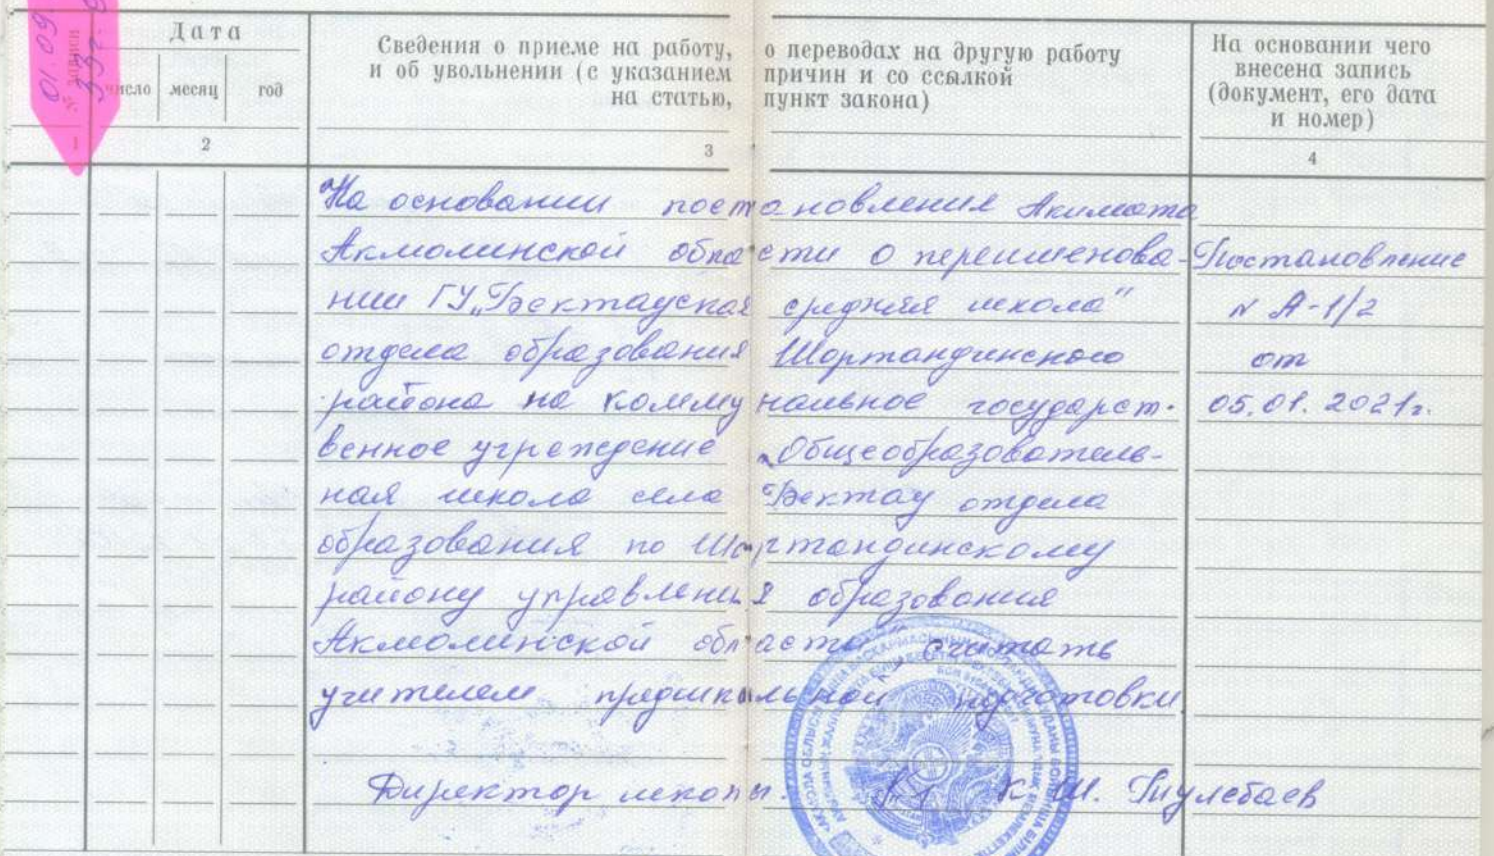 01.09.
Дата
Сведения о приеме на работу, о переводах на другую работу
и об увольнении (с указанием причин и со ссылкой
на статью, пункт закона)
На основании чего
внесена запись
(документ, его дата
и номер)
№ записи
число месяц год
1 2 3 4
На основании постановления Акимата
Акмолинской области о переименова- Постановление
нии ГУ „Бектауская средняя школа" N А-1/2
отдела образования Шортандинского от
района на коммунальное государст- 05.01.2021г.
венное учреждение „Общеобразователь-
ная школа села Бектау отдела
образования по Шортандинскому
району управления образования
Акмолинской области" считать
учителем предшкольной подготовки.
Директор школы. К.Ш.